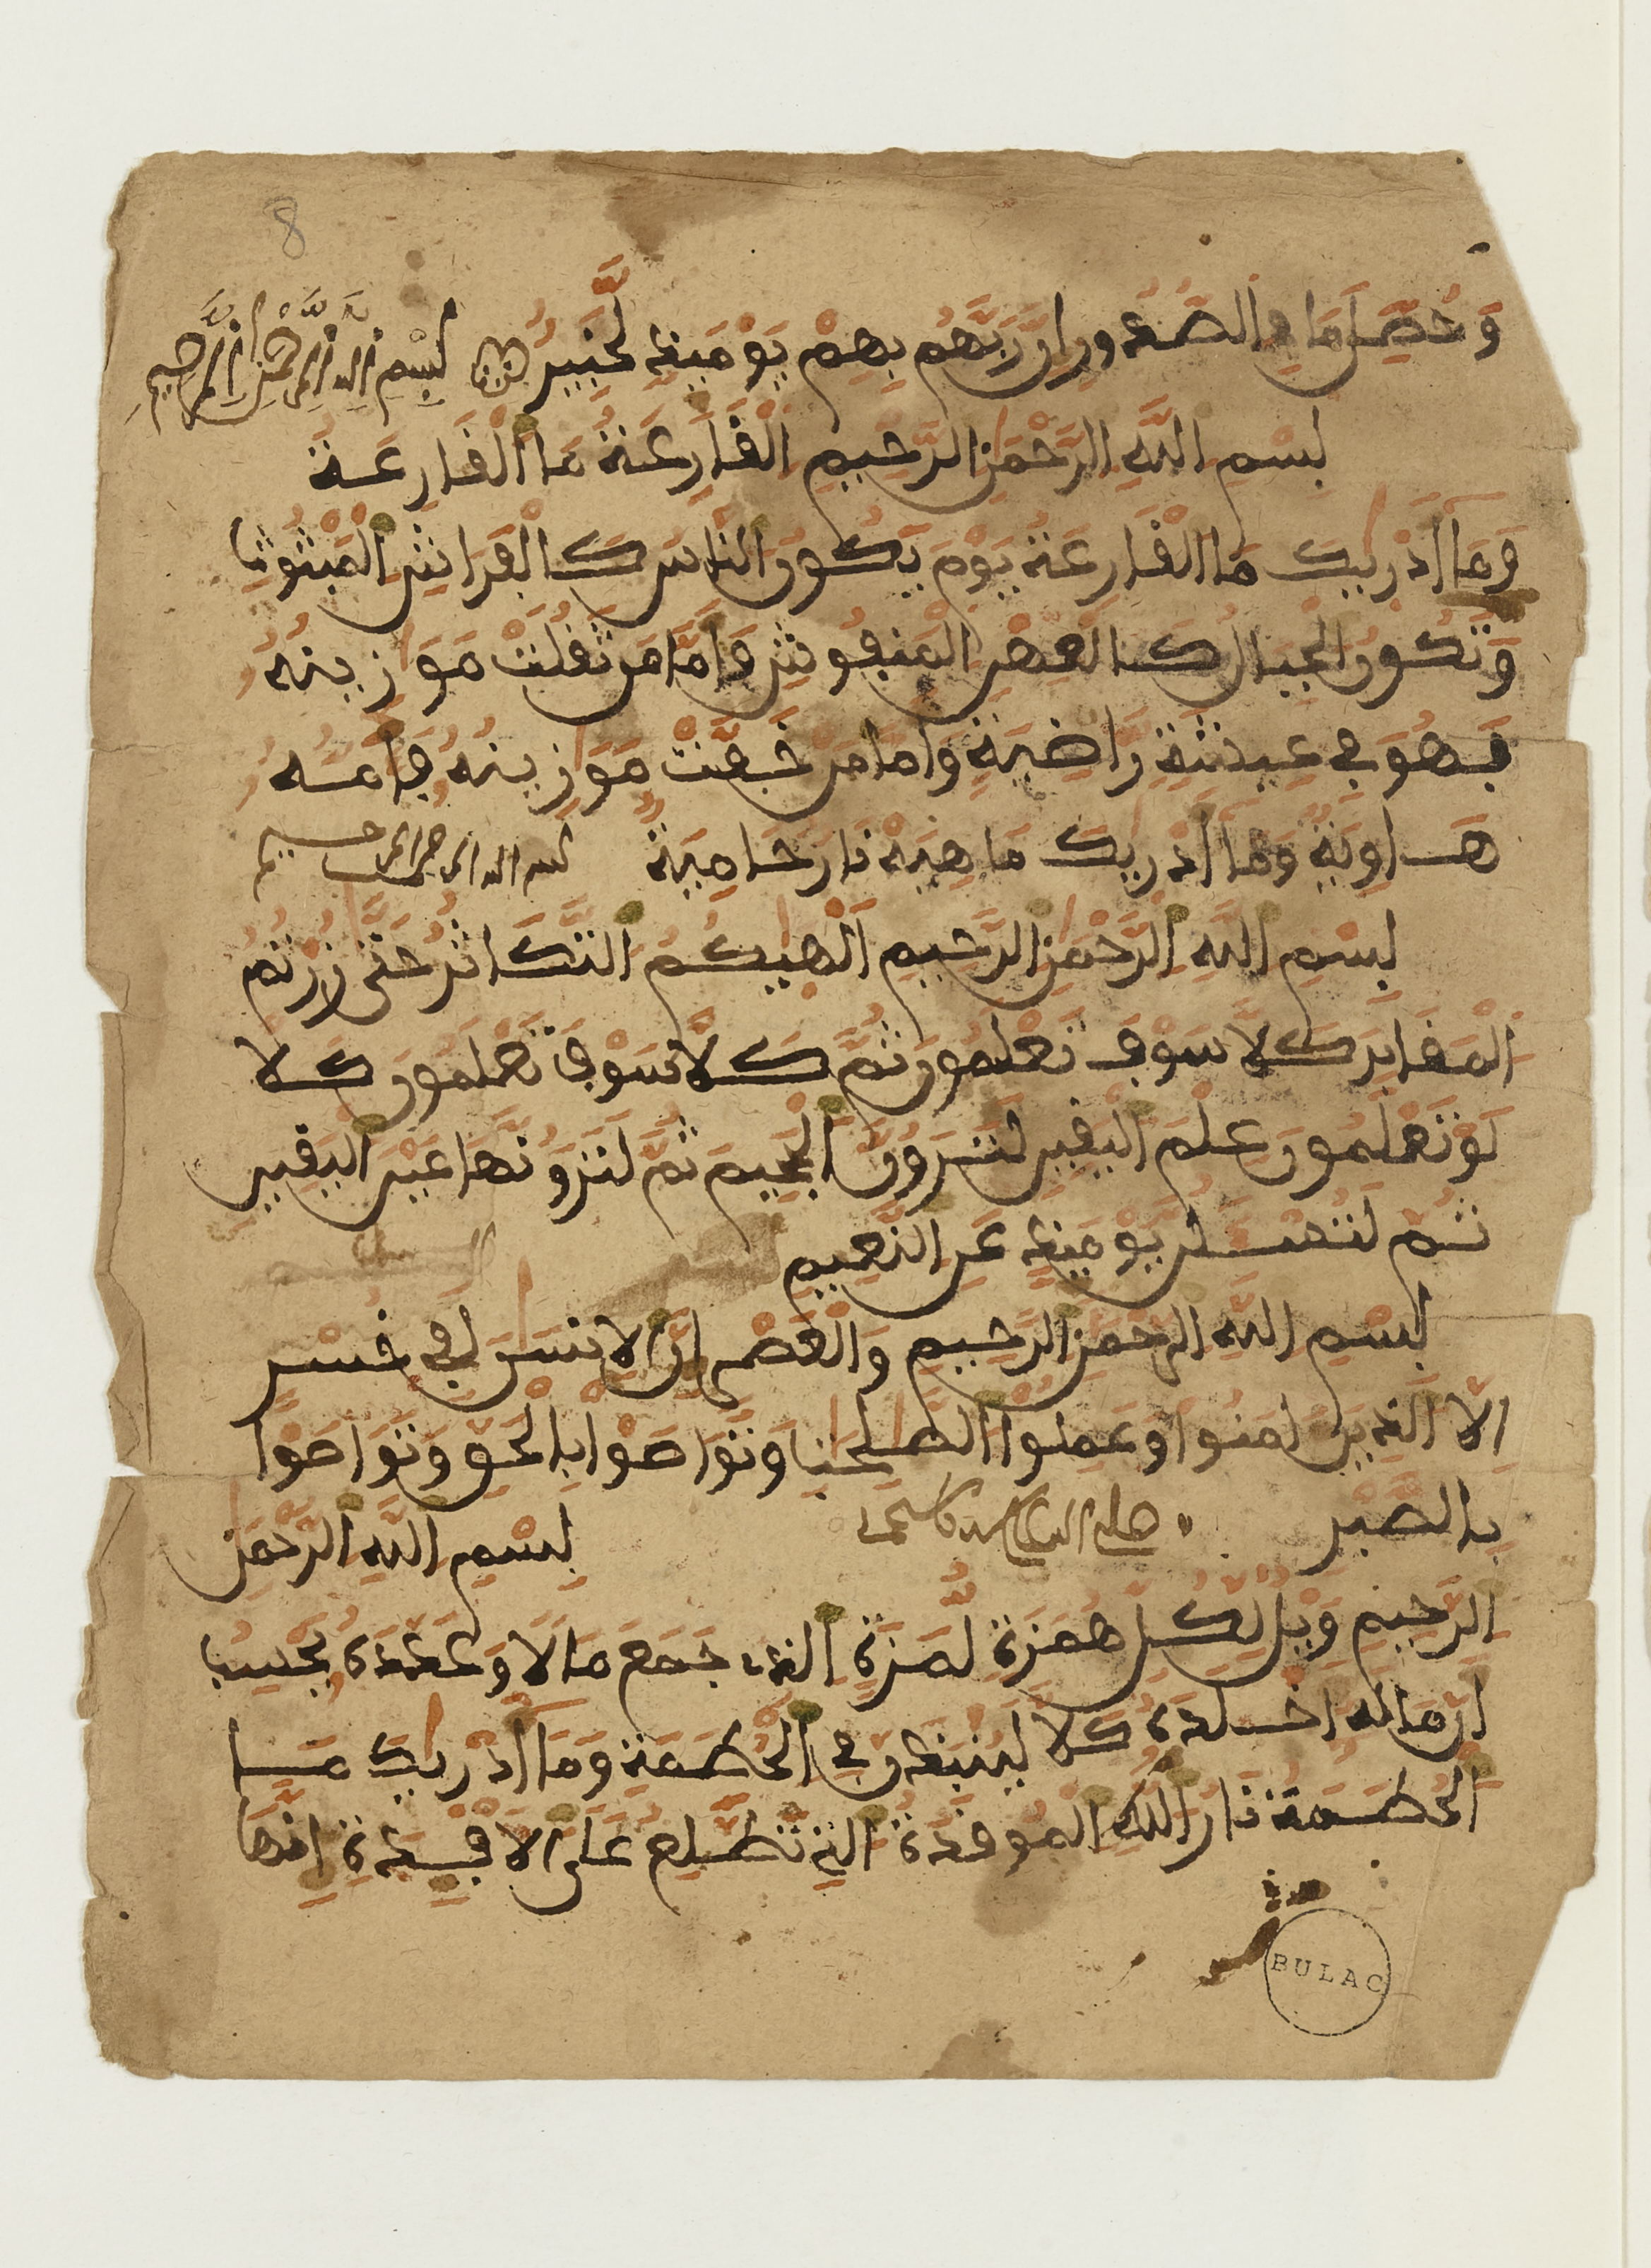 8
وَحُصِّلَ مَا فِي الصُّدُورِ إِنَّ رَبَّهُم بِهِمْ يَوْمَئِذٍ لَّخَبِيرٌ بِسْمِ اللَّهِ الرَّحْمَٰنِ الرَّحِيمِ
بِسْمِ اللَّهِ الرَّحْمَٰنِ الرَّحِيمِ الْقَارِعَةُ مَا الْقَارِعَةُ
وَمَا أَدْرِيكَ مَا الْقَارِعَةُ يَوْمَ يَكُونُ النَّاسُ كَالْفَرَاشِ الْمَبْثُوثِ
وَتَكُونُ الْجِبَالُ كَالْعِهْنِ الْمَنفُوشِ فَأَمَّا مَن ثَقُلَتْ مَوَٰزِينُهُ
فَهُوَ فِي عِيشَةٍ رَّاضِيَةٍ وَأَمَّا مَنْ خَفَّتْ مَوَٰزِينُهُ فَأُمُّهُ
هَاوِيَةٌ وَمَا أَدْرِيكَ مَا هِيَهْ نَارٌ حَامِيَةٌ بسم الله الرحمن الرحيم
بِسْمِ اللَّهِ الرَّحْمَٰنِ الرَّحِيمِ أَلْهَيٰكُمُ التَّكَاثُرُ حَتَّىٰ زُرْتُمُ
الْمَقَابِرَ كَلَّا سَوْفَ تَعْلَمُونَ ثُمَّ كَلَّا سَوْفَ تَعْلَمُونَ كَلَّا
لَوْ تَعْلَمُونَ عِلْمَ الْيَقِينِ لَتَرَوُنَّ الْجَحِيمَ ثُمَّ لَتَرَوُنَّهَا عَيْنَ الْيَقِينِ
ثُمَّ لَتُسْـَٔلُنَّ يَوْمَئِذٍ عَنِ النَّعِيمِ
بِسْمِ اللَّهِ الرَّحْمَٰنِ الرَّحِيمِ وَالْعَصْرِ إِنَّ الْإِنسَٰنَ لَفِي خُسْرٍ
إِلَّا الَّذِينَ ءَامَنُوا وَعَمِلُوا الصَّٰلِحَٰتِ وَتَوَاصَوْا بِالْحَقِّ وَتَوَاصَوْا
بِالصَّبْرِ بِسْمِ اللَّهِ الرَّحْمَٰنِ
الرَّحِيمِ وَيْلٌ لِّكُلِّ هُمَزَةٍ لُّمَزَةٍ الَّذِي جَمَعَ مَالًا وَعَدَّدَهُ يَحْسِبُ
أَنَّ مَالَهُ أَخْلَدَهُ كَلَّا لَيُنبَذَنَّ فِي الْحُطَمَةِ وَمَا أَدْرِيٰكَ مَا
الْحُطَمَةُ نَارُ اللَّهِ الْمُوقَدَةُ الَّتِي تَطَّلِعُ عَلَى الْأَفْـِٔدَةِ إِنَّهَا
BULAC